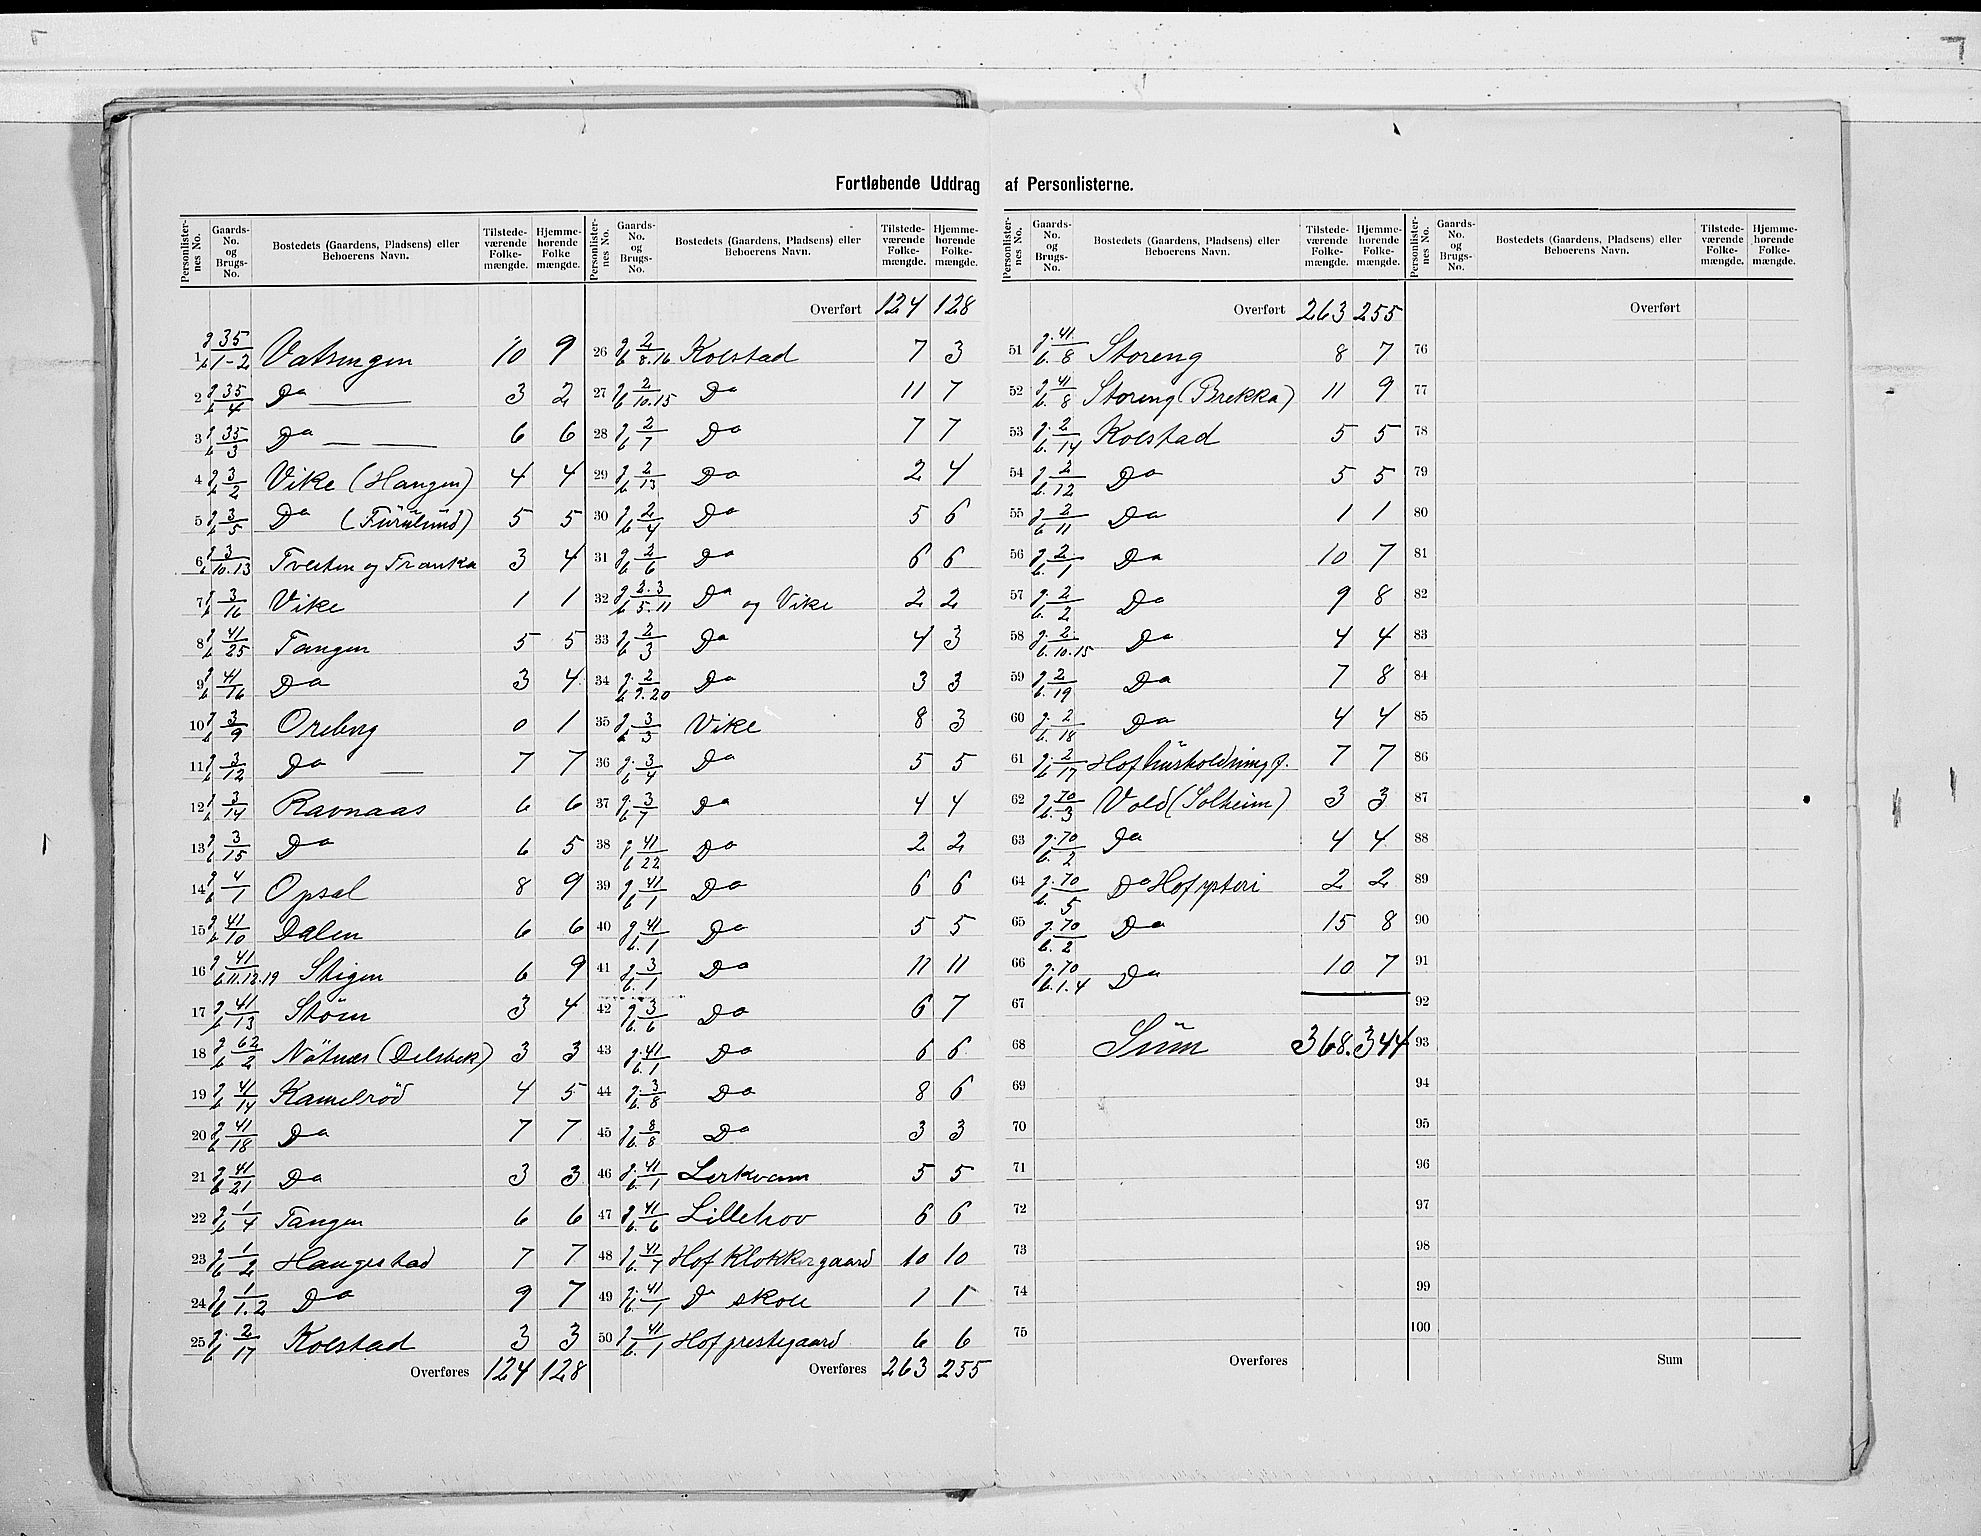 Fortløbende Uddrag af Personlisterne.
Personlister-nes No. Gaards-No. og Brugs-No. Bostedets (Gaardens, Pladsens) eller Beboerens Navn. Tilstede-værende Folke-mængde. Hjemme-hørende Folke mængde.
1 g 35 b 1-2 Vatsengen 10 9
2 g 35 b 4 Do 3 2
3 g 35 b 3 Do 6 6
4 g 3 b 2 Vike (Haugen) 4 4
5 g 3 b 5 Do (Furulund) 5 5
6 g 3 b 10.13 Tveiten og Tranka 3 4
7 g 3 b 16 Vike 1 1
8 g 41 b 25 Tangen 5 5
9 g 41 b 16 Do 3 4
10 g 3 b 9 Oreberg 0 1
11 g 3 b 12 Do 7 7
12 g 3 b 14 Ravnaas 6 6
13 g 3 b 15 Do 6 5
14 g 4 b 1 Opsal 8 9
15 g 41 b 10 Dalen 6 6
16 g 41 b 11.12.19 Stigen 6 9
17 g 41 b 13 Støm 3 4
18 g 62 b 2 Nøtnes (Delsbek) 3 3
19 g 41 b 14 Kamelrød 4 5
20 g 41 b 18 Do 7 7
21 g 41 b 21 Do 3 3
22 g 1 b 4 Tangen 6 6
23 g 1 b 2 Haugestad 7 7
24 g 1 b 1.2 Do 9 7
25 g. 2 b 17 Kolstad 3 3
Overføres 124 128
Personlister-nes No. Gaards-No. og Brugs-No. Bostedets (Gaardens, Pladsens) eller Beboerens Navn. Tilstede-værende Folke-mængde. Hjemme-hørende Folke-mængde.
Overført 124 128
26 g 2 b 8.16 Kolstad 7 3
27 g 2 b 10.15 Do 11 7
28 g 2 b 7 Do 7 7
29 g 2 b 13 Do 2 4
30 g 2 b 4 Do 5 6
31 g 2 b 6 Do 6 6
32 g 2.3 b 5.11 Do og Vike 2 2
33 g 2 b 3 Do 4 3
34 g. 2 b 9.20 Do 3 3
35 g 3 b 3 Vike 8 3
36 g. 3 b 4 Do 5 5
37 g. 3 b 7 Do 4 4
38 g 41 b 22 Do 2 2
39 g. 41 b 1 Do 6 6
40 g. 41 b. 1 Do 5 5
41 g. 3 b. 1 Do 11 11
42 g. 3 b. 6 Do 6 7
43 g. 41 b. 1 Do 6 6
44 g. 3 b. 8 Do 8 6
45 g. 8 b. 8 Do 3 3
46 g. 41 b. 1 Lerkvam 5 5
47 g. 41 b. 6 Lillehov 6 6
48 g. 41 b. 7 Hof Klokkergaard 10 10
49 g. 41 b. 1 Do skole 1 1
50 g. 41 b. 1 Hof prestegaard 6 6
Overføres 263 255
Personlister-nes No. Gaards-No. og Brugs-No. Bostedets (Gaardens, Pladsens) eller Beboerens Navn. Tilstede-værende Folke-mængde. Hjemme-hørende Folke-mængde.
Overført 263 255
51 g. 41 b. 8 Storeng 8 7
52 g. 41 b. 8 Storeng (Brekka) 11 9
53 g. 2 b. 14 Kolstad 5 5
54 g. 2 b. 12 Do 5 5
55 g. 2 b 11 Do 1 1
56 g. 2 b. 1 Do 10 7
57 g. 2 b. 2 Do 9 8
58 g. 2 b. 10.15 Do 4 4
59 g. 2 b. 19 Do 7 8
60 g. 2 b. 18 Do 4 4
61 g. 2 b 17 Hof husholdning 7 7
62 g. 70 b. 3 Vold (Solheim) 3 3
63 g. 70 b. 2 Do 4 4
64 g. 70 b. 5 Do Hof ysteri 2 2
65 g. 70 b. 2 Do 15 8
66 g. 70 b. 1.4 Do 10 7
67
68 Sum 368. 344
69
70
71
72
73
74
75
Overføres
Personlister-nes No. Gaards-No. og Brugs-No. Bostedets (Gaardens, Pladsens) eller Beboerens Navn. Tilstede-værende Folke-mængde. Hjemme-hørende Folke-mængde.
Overført
76
77
78
79
80
81
82
83
84
85
86
87
88
89
90
91
92
93
94
95
96
97
98
99
100
Sum